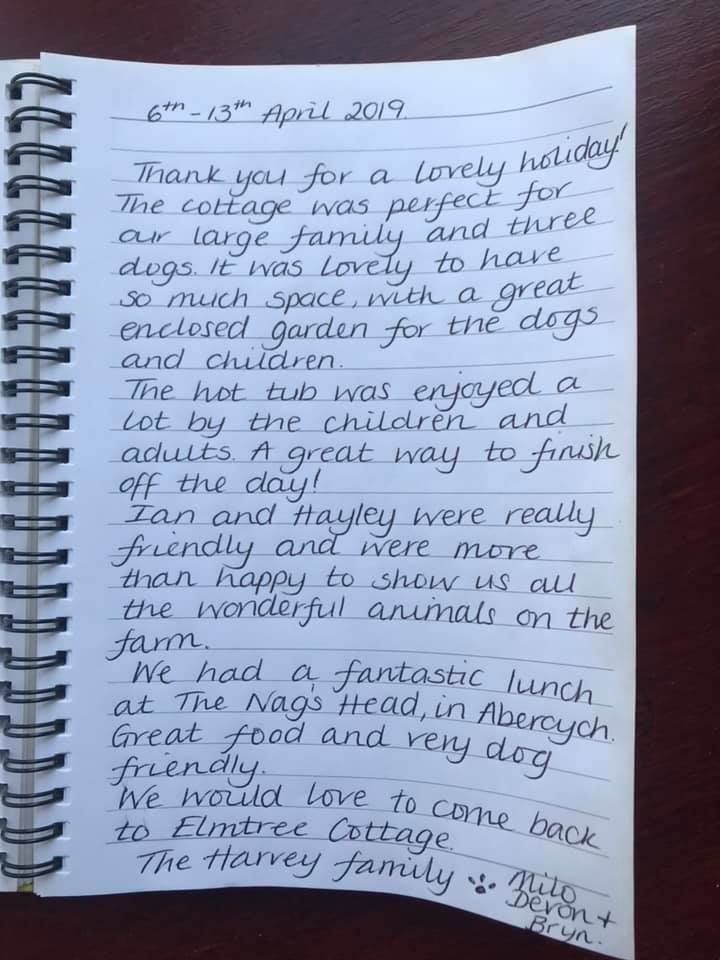 6th - 13th April 2019.
Thank you for a lovely holiday!
The cottage was perfect for
our large family and three
dogs. It was lovely to have
so much space, with a great
enclosed garden for the dogs
and children.
The hot tub was enjoyed a
lot by the children and
adults. A great way to finish
off the day!
Ian and Hayley were really
friendly and were more
than happy to show us all
the wonderful animals on the
farm.
We had a fantastic lunch
at The Nag's Head, in Abercych.
Great food and very dog
friendly.
We would love to come back
to Elmtree Cottage.
The Harvey family Milo
Devon +
Bryn.